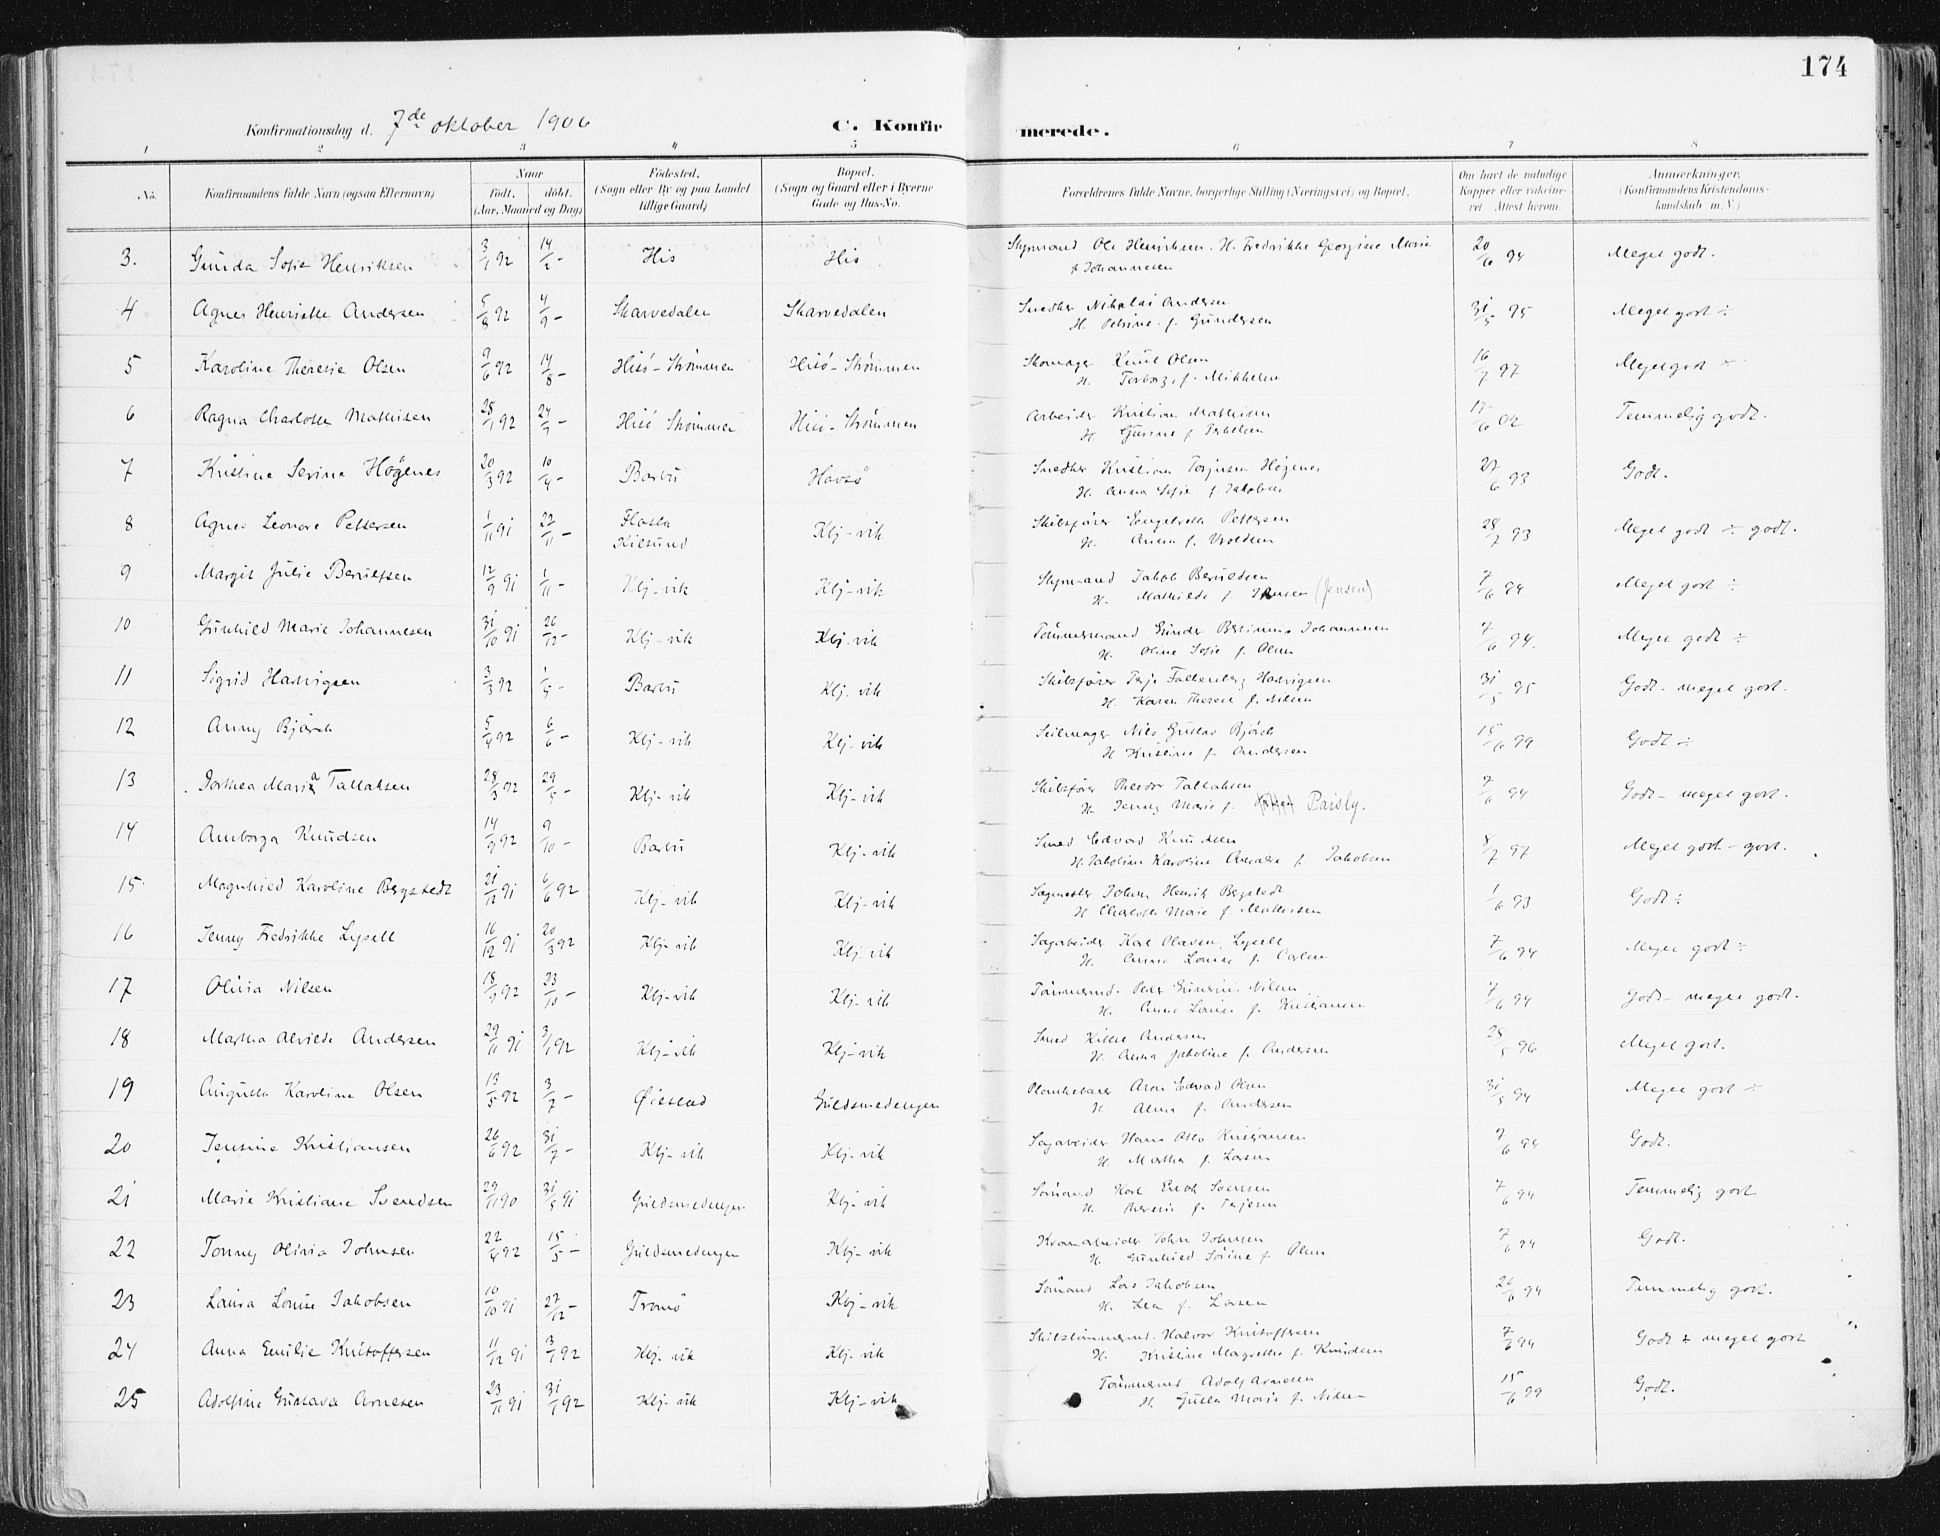 174
Konfirmationsdag d. 7de oktober 1906 C. Konfirmerede.
1 2 3 4 5 6 7 8
No. Konfirmandens fulde Navn (ogsaa Efternavn) Naar födt, döbt. (Aar, Maaned og Dag) Födested. (Sogn eller By og paa Landet tillige Gaard) Bopæl. (Sogn og Gaard eller i Byerne Gade og Hus-No. Forældrenes fulde Navne, borgerlige Stilling (Næringsvei) og Bopæl. Om havt de naturlige Kopper eller vaccineret Attest herom. Anmerkninger. (Konfirmandens Kristendomskundskab m. V.)
3. Gunda Sofie Henriksen 3/1 92 14/2 - His His Styrmand Ole Henriksen. H. Fredrikke Georgine Marie 20/6 94 Meget godt.
f Johannesen
4 Agnes Henriette Andersen 5/8 92 4/9 - Skarvedalen Skarvedalen Snedker Nikolai Andersen 31/5 95 Meget godt ÷
H. Petrine f. Gundersen
5 Karoline Theresie Olsen 9/6 92 14/8 - Hisö-Strömmen Hisö-Strömmen Skomager Knut Olsen 16/7 97 Meget godt ÷
H. Torborg f. Mikkelsen
6 Ragna Charlotte Mathisen 28/1 92 24/7 - Hisö Strömmen Hisö-Strömmen Arbeider Kristian Mathisen 17/6 02 Temmelig godt.
H. Gurine f Terkelsen
7 Kristine Serine Högenes 20/3 92 10/4 - Barbu Havsö Snedker Kristian Terjusen Högenes 27/6 93 Godt.
H. Anna Sofie f. Jakobsen
8 Agnes Leonore Pettersen 1/11 91 22/11 - Flosta Kilsund Klj-vik Skibsfører Engebreth Pettersen 28/7 93 Meget godt ÷ godt.
H. Anna f. Vroldsen
9 Margit Julie Berulfsen 12/9 91 1/11 - Klj-vik Klj-vik Styrmand Jakob Berulfsen 7/6 94 Meget godt ÷
H. Mathilde f Jensen (Jensen)
10 Gunhild Marie Johannesen 31/10 91 26/12 - Klj-vik Klj-vik Tömmermand Gunder Bertinius Johannesen 7/6 94. Meget godt ÷
H. Oline Sofie f. Olsen
11 Sigrid Hartvigsen 3/3 92 1/5 - Barbu Klj-vik Skibsfører Terje Falkenberg Hartvigsen 31/5 95 Godt - meget godt.
H. Karen Therese f. Nilsen
12 Anny Björck 5/4 92 6/6 - Klj-vik Klj-vik Seilmager Nils Gustav Björck 15/6 99 Godt ÷
H Kristine f Andersen
13 Dorthea Maria Tallaksen 28/3 92 29/5 - Klj-vik Klj-vik Skibsfører Theodor Tallaksen 7/6 94 Godt - meget godt.
H. Jenny Marie f. Paisly.
14 Amborga Knudsen 14/9 92 9/10 - Barbu Klj-vik Smed Edvard Knudsen 8/7 97 Meget godt - godt.
H. Jakobine Karoline Amalie f Jakobsen
15 Magnhild Karoline Bergstedt 21/12 91 6/6 92 Klj-vik Klj-vik Sagmester Johan Henrik Bergstedt 1/6 93 Godt ÷
H Charlotte Marie f Mathisen
16 Jenny Fredrikke Lysell 16/12 91 20/3 92 Klj-vik Klj-vik Sagarbeider Karl Olavsen Lysell 7/6 94 Meget godt ÷
H. Anna Lovise f. Carlsen
17 Olivia Nilsen 18/9 92 23/10 - Klj-vik Klj-vik Tömmermd. Peder Gunerius Nilsen 7/6 94 Godt - meget godt.
H. Anne Lovise f. Kristjansen
18 Martha Alvilde Andersen 29/11 91 3/1 92 Klj-vik Klj-vik Smed Andersen 28/5 96 Meget godt.
H. Anna Jakobine f. Andersen
19 Augusta Karoline Olsen 13/5 92 3/7 - Øiestad Guldsmedengen Plankebærer Aron Edvard Olsen 31/5 94 Meget godt ÷
H. Alma f. Andersen
20 Jensine Kristiansen 26/6 92 31/7 - Klj-vik Klj-vik Sagarbeider Hans Otto Kristjansen 7/6 94 Godt.
H. Martha f. Larsen
21 Marie Kristiane Svendsen 29/11 90 31/5 91 Guldsmedengen Klj-vik Sömand Karl Svensen 7/6 94 Temmelig godt
H. Theresie f. Terjesen
22 Tonny Olivia Johnsen 22/4 92 15/5 - Guldsmedengen Klj-vik Kranarbeider John Johnsen 7/6 94 Godt.
H. Gunhild Sörine f. Olsen
23 Laura Lovise Jakobsen 16/10 91 27/12 - Tromö Klj-vik Sömand Lars Jakobsen 26/6 94 Temmelig godt.
H. Lea f. Larsen
24 Anna Emilie Kristoffersen 11/12 91 3/1 92 Klj-vik Klj-vik Skibstömmermd. Halvor Kristoffersen 7/6 94 Godt + meget godt
H. Kristine Magrethe f. Knudsen
25 Adolfine Gustava Arnesen 23/11 91 31/1 92 Klj-vik Klj-vik Tömmermd. Adolf Arnesen 15/6 99 Godt.
H. Gusta Marie f. Nilsen